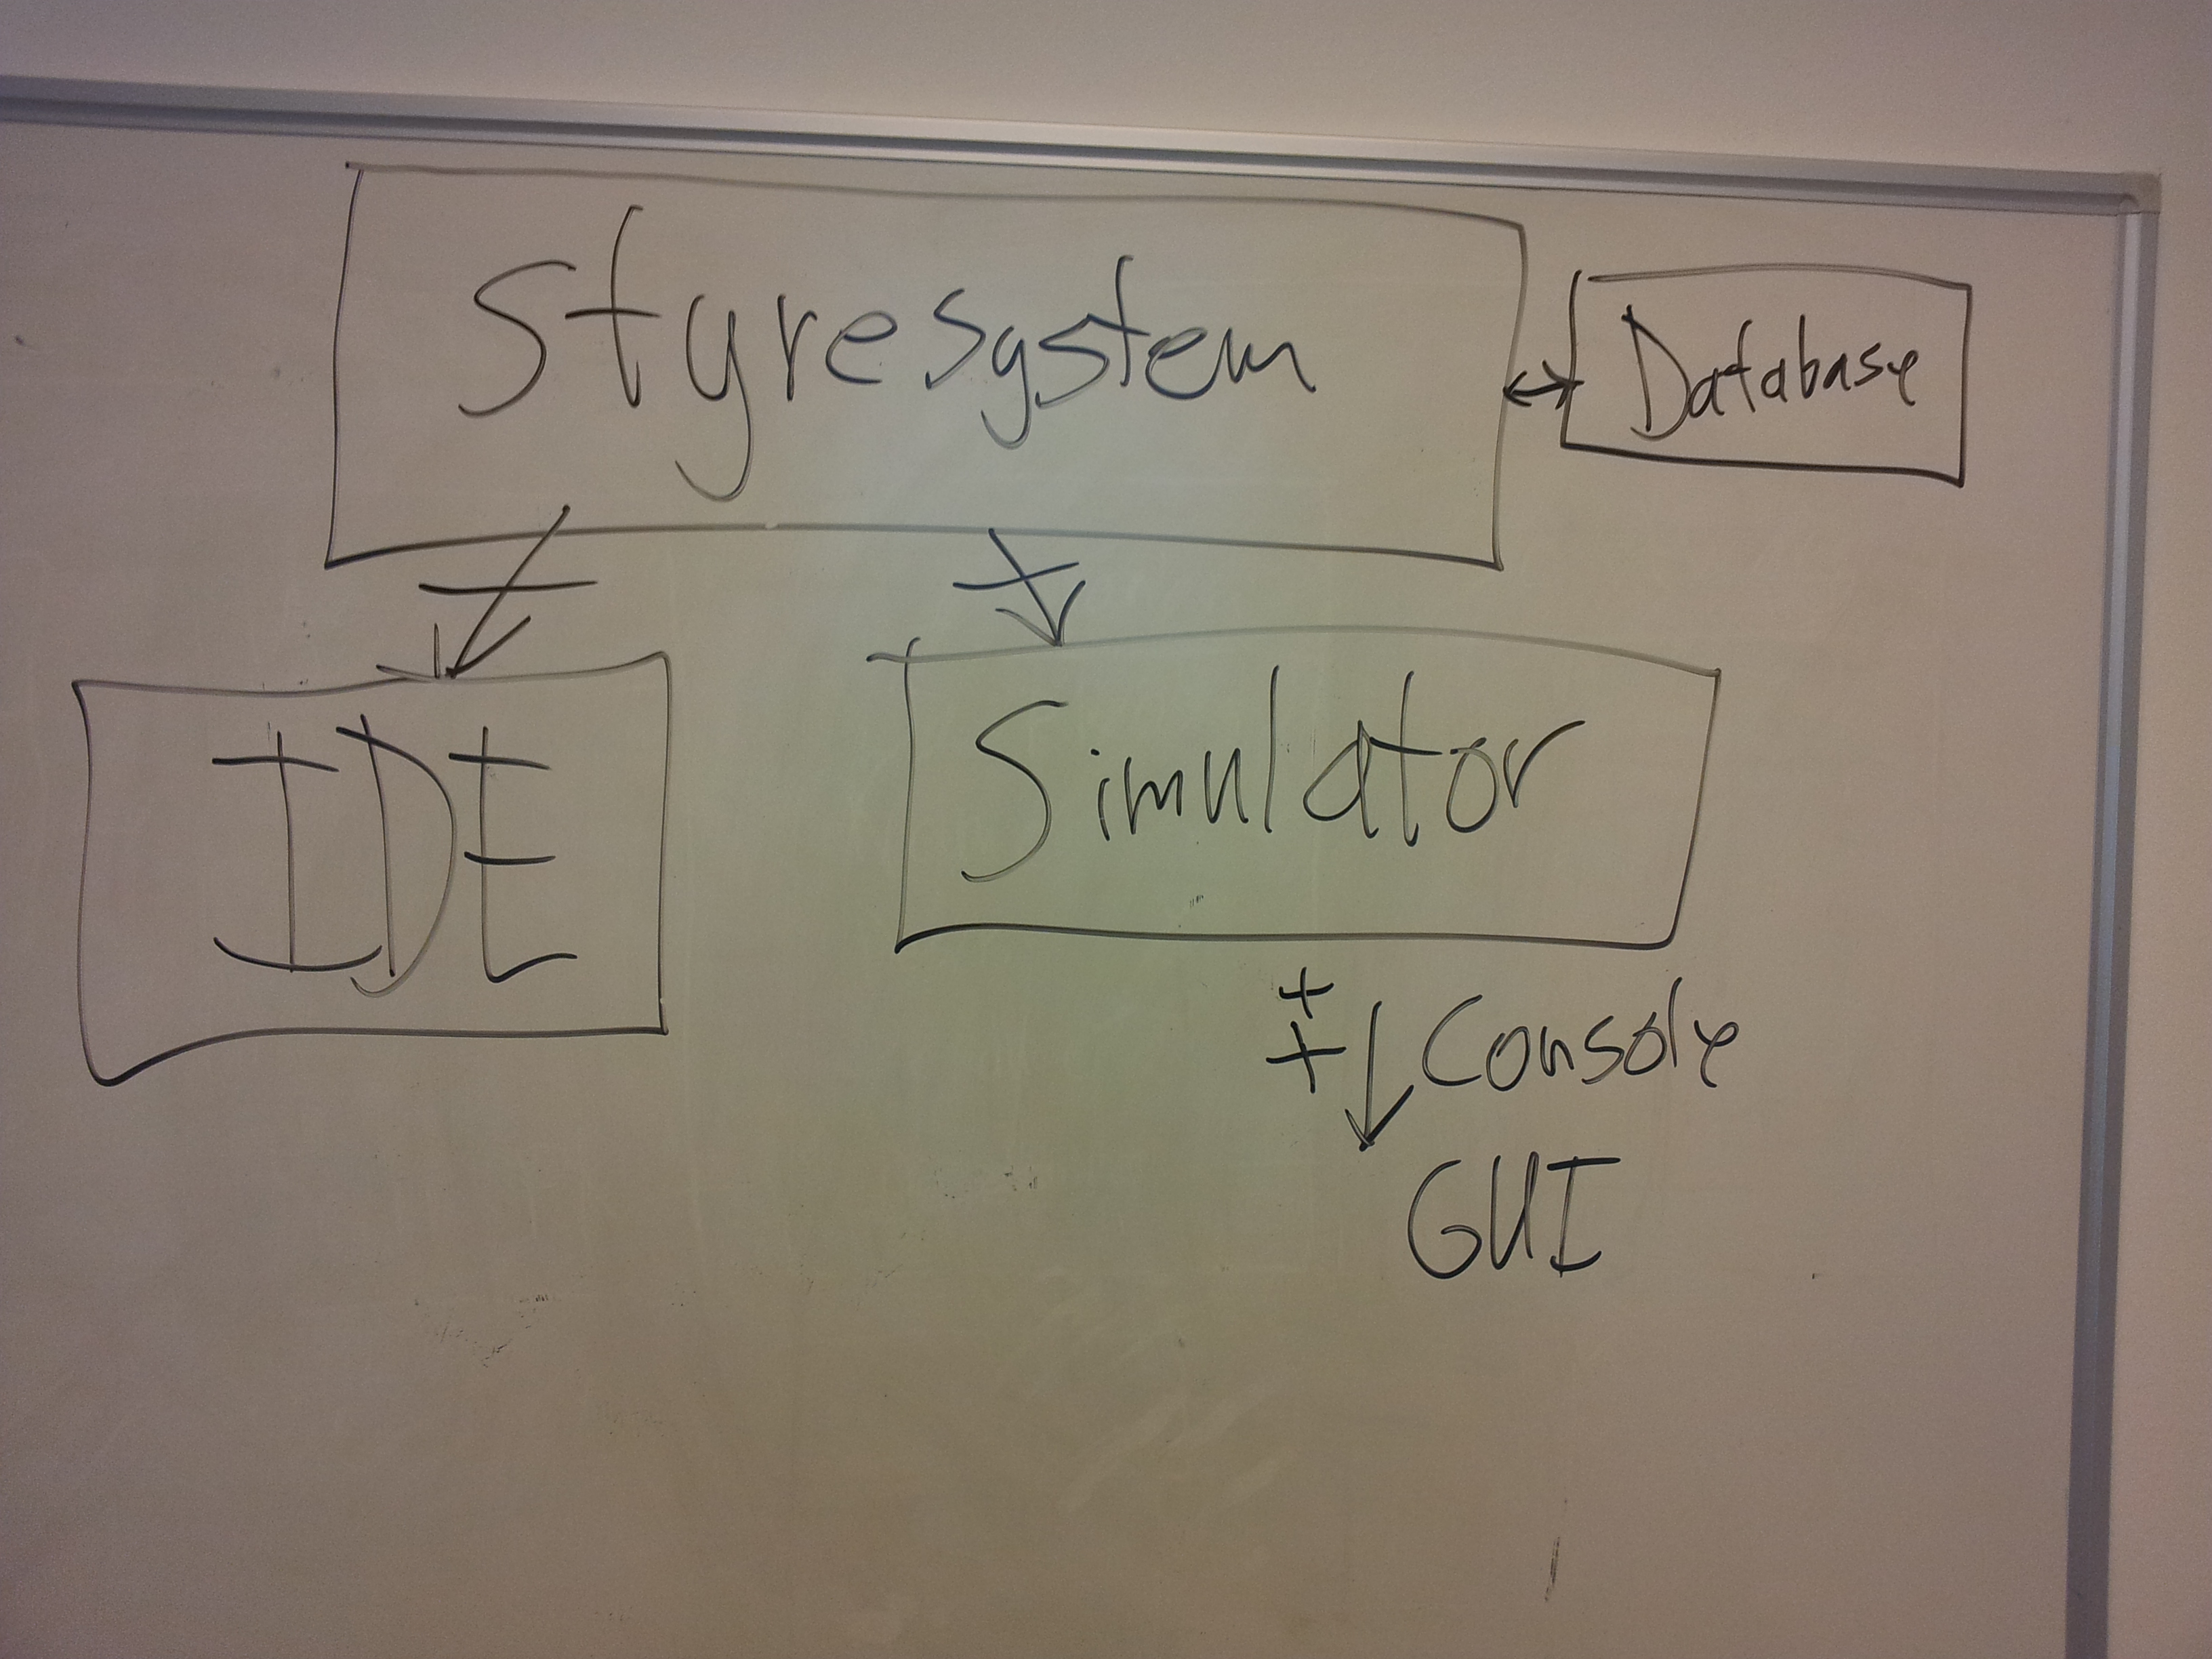 Styresystem
Database
IDE
Simulator
++
Console
GUI